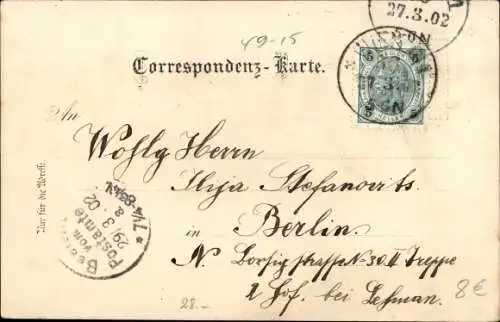 27.3.02
49-15
WIEN
Correspondenz-Karte.
5 5
An
Wohlg Herrn
Ilija Stefanovits.
in
Berlin.
N. Borsigstrasse No 30. II Treppe
2 Hof. bei Lehman.
Nur für die Adresse.
Bestellt
vom
Postamte
29/3 02
28.-
8€